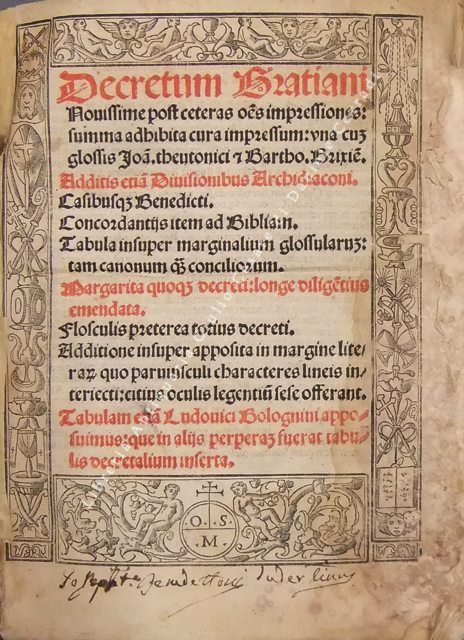 Decretum Gratiani
Nouissime post ceteras oēs impressiones:
summa adhibita cura impressum: vna cuȝ
glossis Joā. theutonici ⁊ Bartho. Brixiē.
Additis etiā Diuisionibus Archidiaconi.
Casibusqȝ Benedicti.
Concordantijs item ad Bibliam.
Tabula insuper marginalium glossularuȝ:
tam canonum q̄ȝ conciliorum.
Margarita quoqȝ decreti: longe diligētius
emendata.
Flosculis preterea totius decreti.
Additione insuper apposita in margine lite-
raꝝ quo paruusculi characteres lineis in-
teriecti: citius oculis legentiū sese offerant.
Tabulam etiā Ludouici Bolognini appo-
suimus: que in alijs perperaȝ fuerat tabu-
lis decretalium inserta.
O. S.
M.